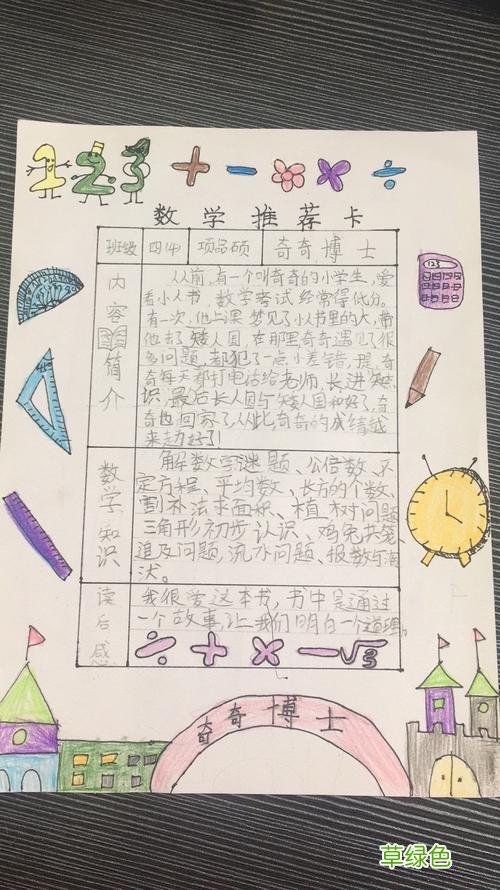 123
数学推荐卡
班级 四(4) 项品硕 奇奇博士
内容简介
从前,有一个叫奇奇的小学生,爱
看小人书,数学考试经常得低分。
有一次,他上课梦见了小人书里的大,带
他去了矮人国,在那里奇奇遇见了很
多问题,都犯了一点小差错,提,奇
奇每天都打电话给老师,长进知
识,最后长人国与矮人国和好了,奇
奇也回家了,从此,奇奇的成绩越
来越好了!
数学知识
解数学谜题、公倍数、不
定方程、平均数、长方的个数、
割补法求面积、植树问题
三角形初步认识、鸡兔共笼、
追及问题,流水问题、报数与
状。
读后感
我很爱这本书,书中是通过
一个故事让我们明白一个道理。
÷ + × − √3
奇奇博士
123
草绿色